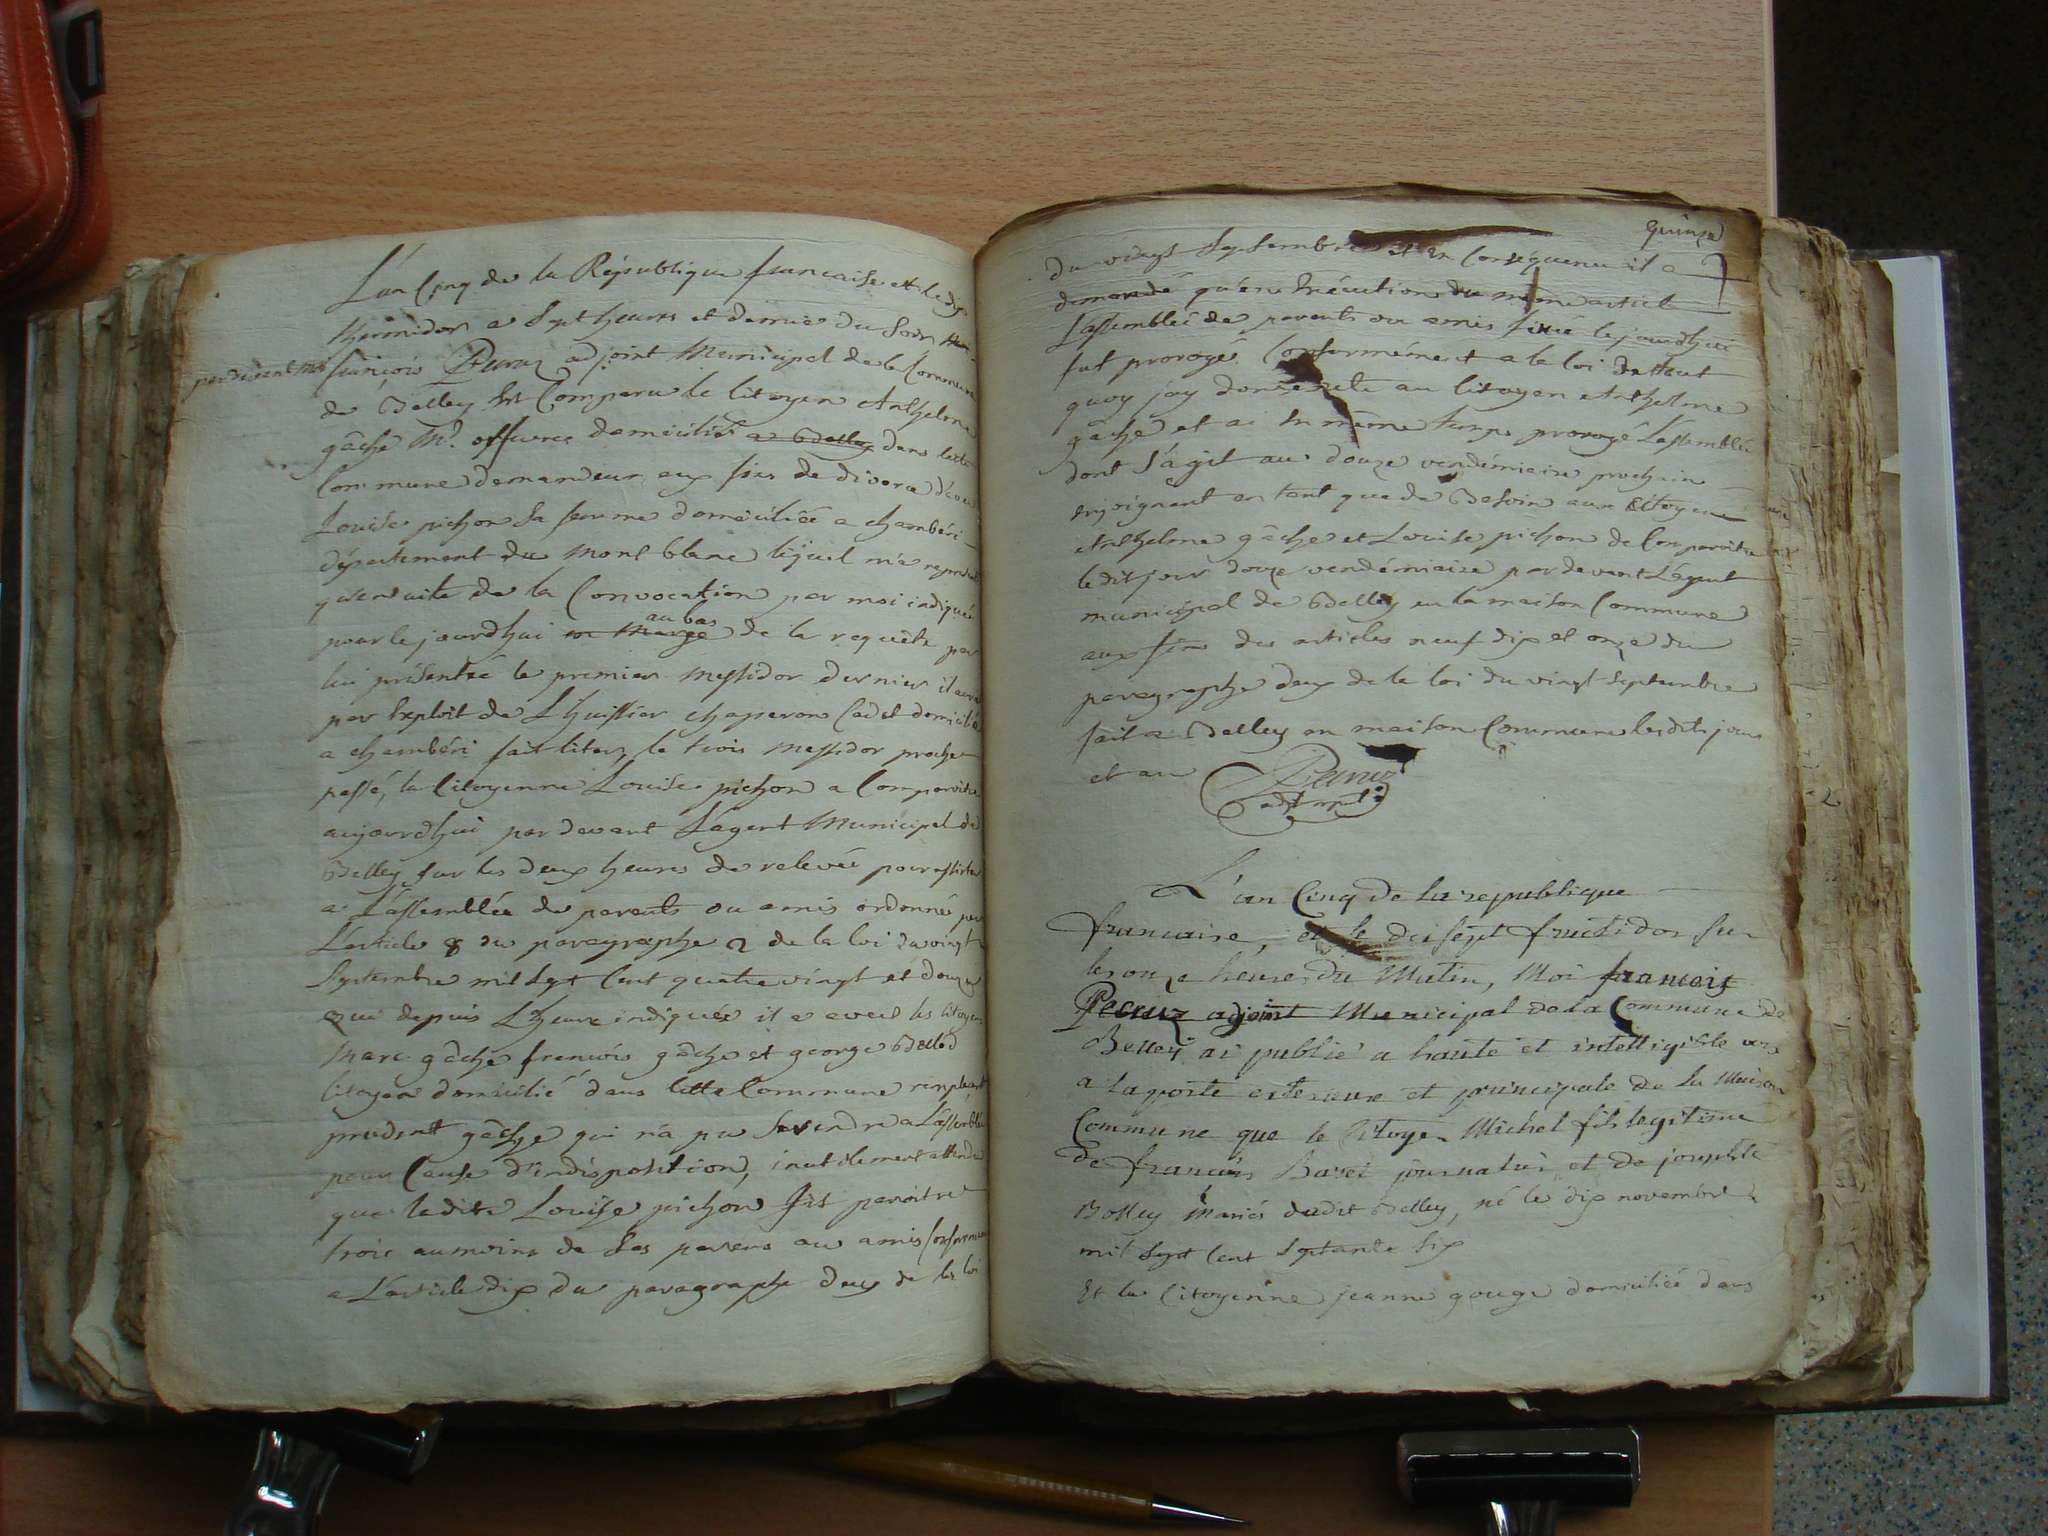 L'an Cinq de la République francaise et le dix
thermidor a Sept heures et demie du Soir
pardevant moi
françois Peruz adjoint Municipal de la Commune
de Belley Est Comparu le Citoyen Anthelme
gâche Mr. offevre domicilié a Belley dans cette
Commune demandeur aux fins de divorce d'avec
Louise pichon Sa femme domiciliée a chambéri
département du Mont blanc lequel m'a représenté
qu'ensuite de la Convocation par moi indiquée
au bas
pour le jourdhui en Marge de la requête par
lui présentée le premier Messidor dernier il auroit
par Exploit de L'huissier chaperon Cadet domicilié
a chambéri fait citer, le trois Messidor proche
passé, la Citoyenne Louise pichon a Comparoitre
aujourdhui par devant L'agent Municipal de
Belley Sur les deux heures de relevée pour assister
a L'assemblée de parents ou amis ordonnée par
L'article 8 du paragraphe 2 de la loi du vingt
Septembre mil Sept Cent quatre vingt et douze
que depuis L'heure indiquée il a avec les Citoyens
Marc gâche francois gâche et george Bellod
Citoyen domicilié dans Cette Commune remplaçant
prudent gâche qui n'a pu Se rendre a L'assemblée
pour Cause d'indisposition, inutilement attendu
que ladite Louise pichon fit paroitre
trois aumoins de Ses parens ou amis Conformément
a L'article dix du paragraphe deux de la loi
quinze
du vingt Septembre et en Conséquence il a
demandé qu'en Exécution du même article
L'assemblée de parents ou amis fixée le jourdhui
fut prorogé Conformément a la loi de tout
quoy j'ay donné acte au Citoyen Anthelme
gâche et ai En même temps prorogé L'assemblée
dont S'agit au douze vendémiaire prochain
Enjoignant en tant que de Besoin aux Citoyens
Anthelme gâche et Louise pichon de Comparoitre
ledit jour douze vendémiaire pardevant L'agent
municipal de Belley en la maison Commune
aux fins des articles neuf dix et onze du
paragraphe deux de la loi du vingt Septembre
fait a Belley en maison Commune lesdits jour
et an Peruz
adt mpal
L'an Cinq de la republique
francaise, et le dixsept fructidor Sur
les onze heures du Matin, Moi francois
Peruz adjoint Municipal de la Commune de
Belley ai publié a haute et intelligible voix
a la porte exterieure et principale de la Maison
Commune que le Citoyen Michel fils legitime
de francois Baret journalier et de josephte
Bolley Mariés dudit Belley, né le dix novembre
mil Sept Cent Septante Six
Et la Citoyenne jeanne gouge domiciliée dans